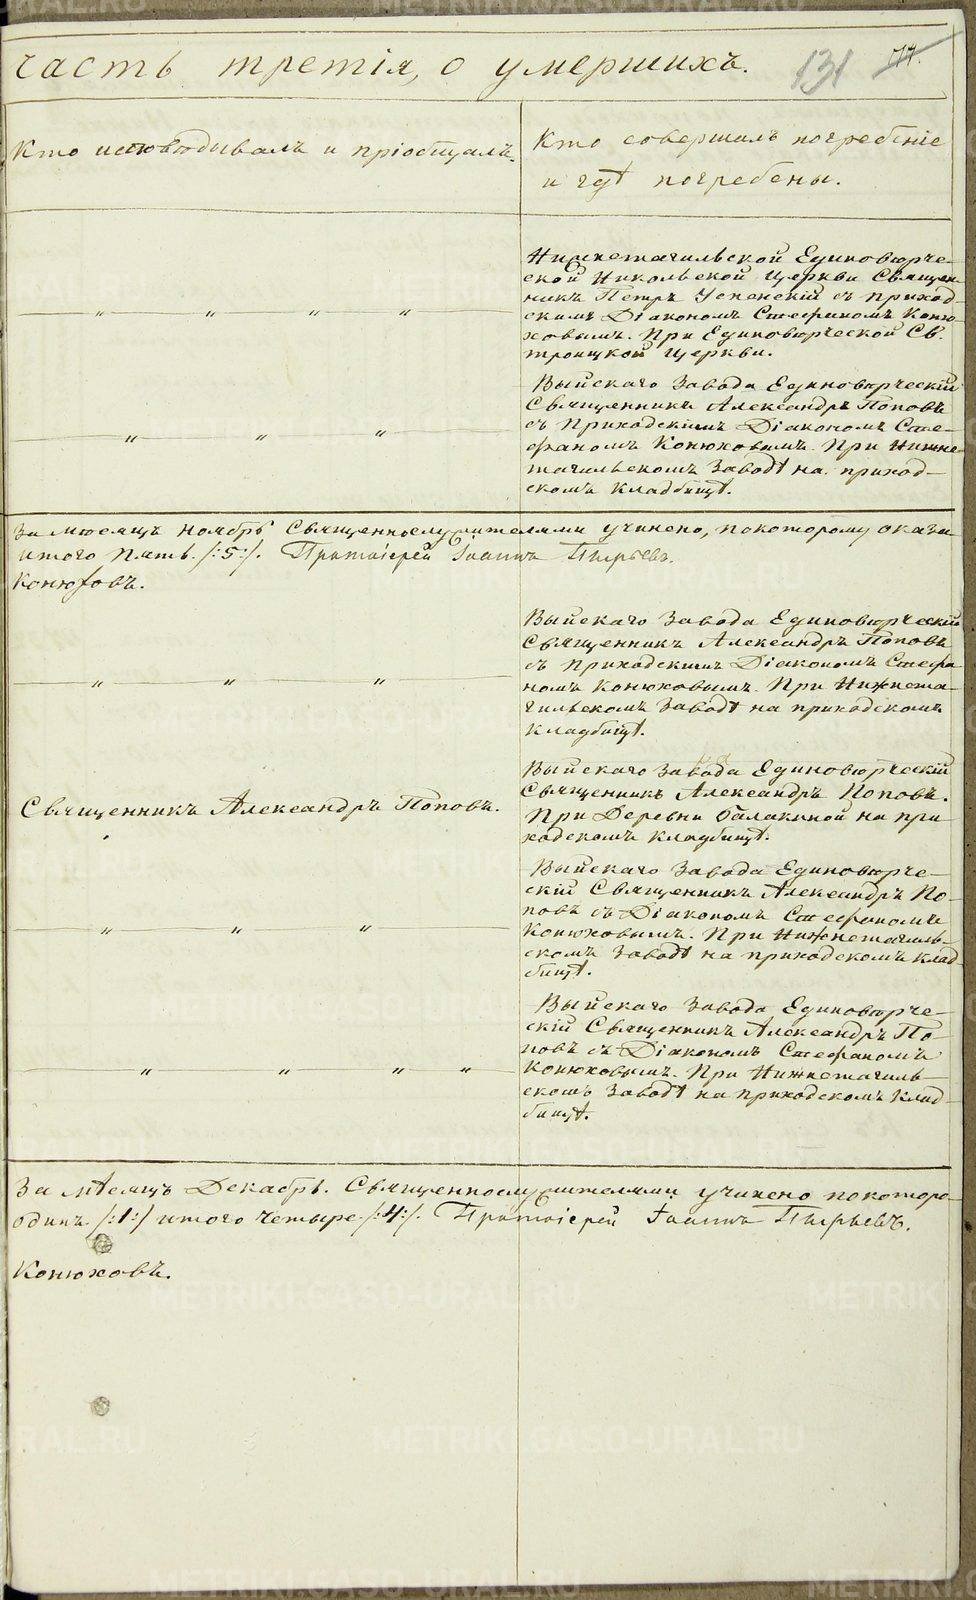 часть третія, о умершихъ.
131
Кто исповѣдывалъ и пріобщалъ.
Кто совершалъ погребеніе
и гдѣ погребены.
Нижнетагильской Единовѣрче-
ской Никольской Церкви Священ-
никъ Петръ Успенскій съ приход-
скимъ Діакономъ Стефаномъ Коню-
ховымъ. При Единовѣрческой Св.
троицкой Церкви.
" " " "
Выйскаго Завода Единовѣрческій
Священникъ Александръ Поповъ
съ Приходскимъ Діакономъ Сте-
фаномъ Конюховымъ. При Нижне-
тагильскомъ Заводѣ на приход-
скомъ Кладбищѣ.
" " "
За мѣсяцъ Ноябрь Священнослужителями учинено, по которому оказа-
итого пять /:5:/. Протоіерей Іоаннъ Пырьевъ.
Конюховъ.
Выйскаго Завода Единовѣрческій
Священникъ Александръ Поповъ
съ Приходскимъ Діакономъ Стефа-
номъ Конюховымъ. При Нижнета-
гильскомъ Заводѣ на приходскомъ
Кладбищѣ.
" " "
Выйскаго Завода Единовѣрческій
Священникъ Александръ Поповъ.
При Деревни Балакиной на при-
ходскомъ Кладбищѣ.
Священникъ Александръ Поповъ.
Выйскаго Завода Единовѣрче-
скій Священникъ Александръ По-
повъ съ Діакономъ Стефаномъ
Конюховымъ. При Нижнетагиль-
скомъ Заводѣ на приходскомъ Клад-
бищѣ.
" " "
Выйскаго Завода Единовѣрче-
скій Священникъ Александръ По-
повъ съ Діакономъ Стефаномъ
Конюховымъ. При Нижнетагиль-
скомъ Заводѣ на приходскомъ Клад-
бищѣ.
" " " "
За мѣсяцъ Декабрь. Священнослужителями учинено по которо-
одинъ /:1:/ итого четыре /:4:/. Протоіерей Іоаннъ Пырьевъ.
Конюховъ.
METRIKI.GASO-URAL.RU